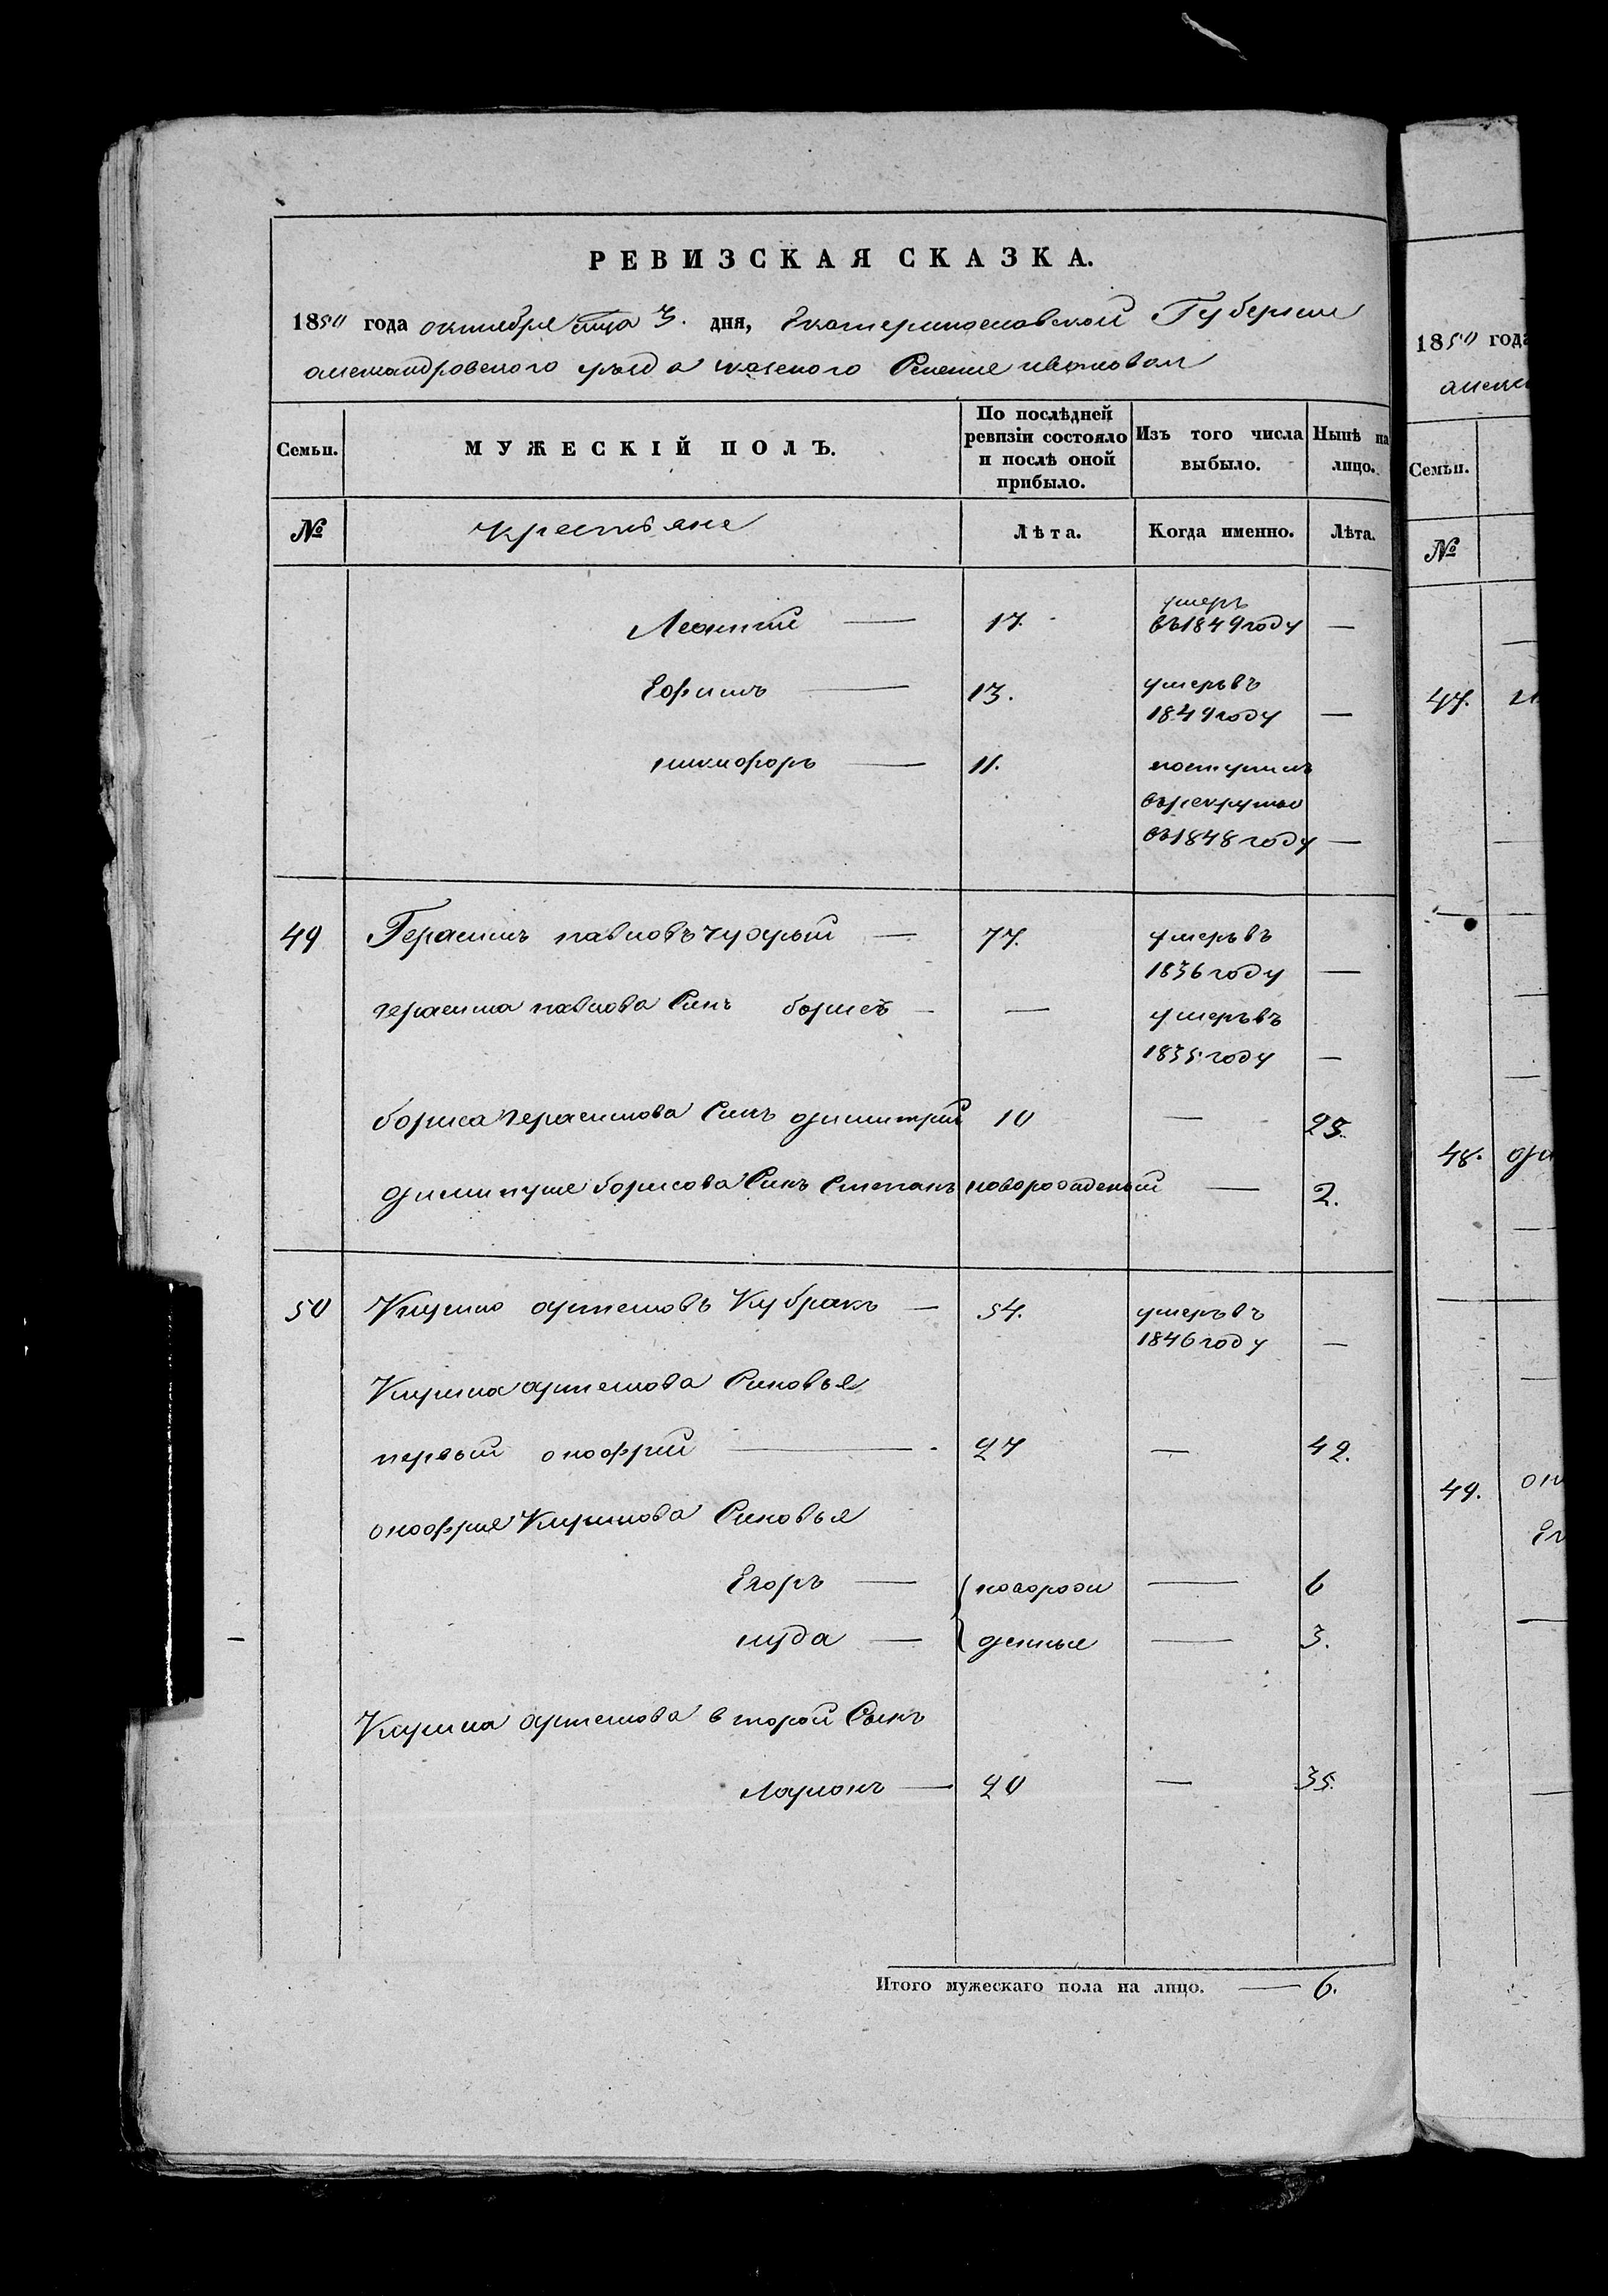 РЕВИЗСКАЯ СКАЗКА.
1850 года октября мца 3. дня, Екатеринославской Губернии
александровского уезда казеного Селение ивановки
Семьи. МУЖЕСКІЙ ПОЛЪ. По послѣдней ревизіи состояло и послѣ оной прибыло. Изъ того числа выбыло. Нынѣ на лицо.
№ крестьяне Лѣта. Когда именно. Лѣта.
Леонтий — 17. умеръ въ 1849 году —
Ефимъ — 13. умеръ въ 1849 году —
никифоръ — 11. поступилъ въ рекруты въ 1848 году —
49 Герасимъ павловъ — 77. умеръ въ 1836 году —
герасима павлова Синъ борисъ — — умеръ въ 1835 году —
бориса герасимова Синъ димитрий 10 — 25.
димитрие борисова Синъ Степанъ новорожденый — 2.
50 Клримо артемовъ Кубракъ — 54. умеръ въ 1846 году —
артемова Синовья
первый онофрий — 27 — 42.
онофрия Синовья
Егоръ — новорож — 6
иуда — денные — 3.
артемова второй Сынъ
Ларионъ — 20 — 35.
Итого мужескаго пола на лицо. — 6.
1850 года
Семьи.
№
47.
48.
49.